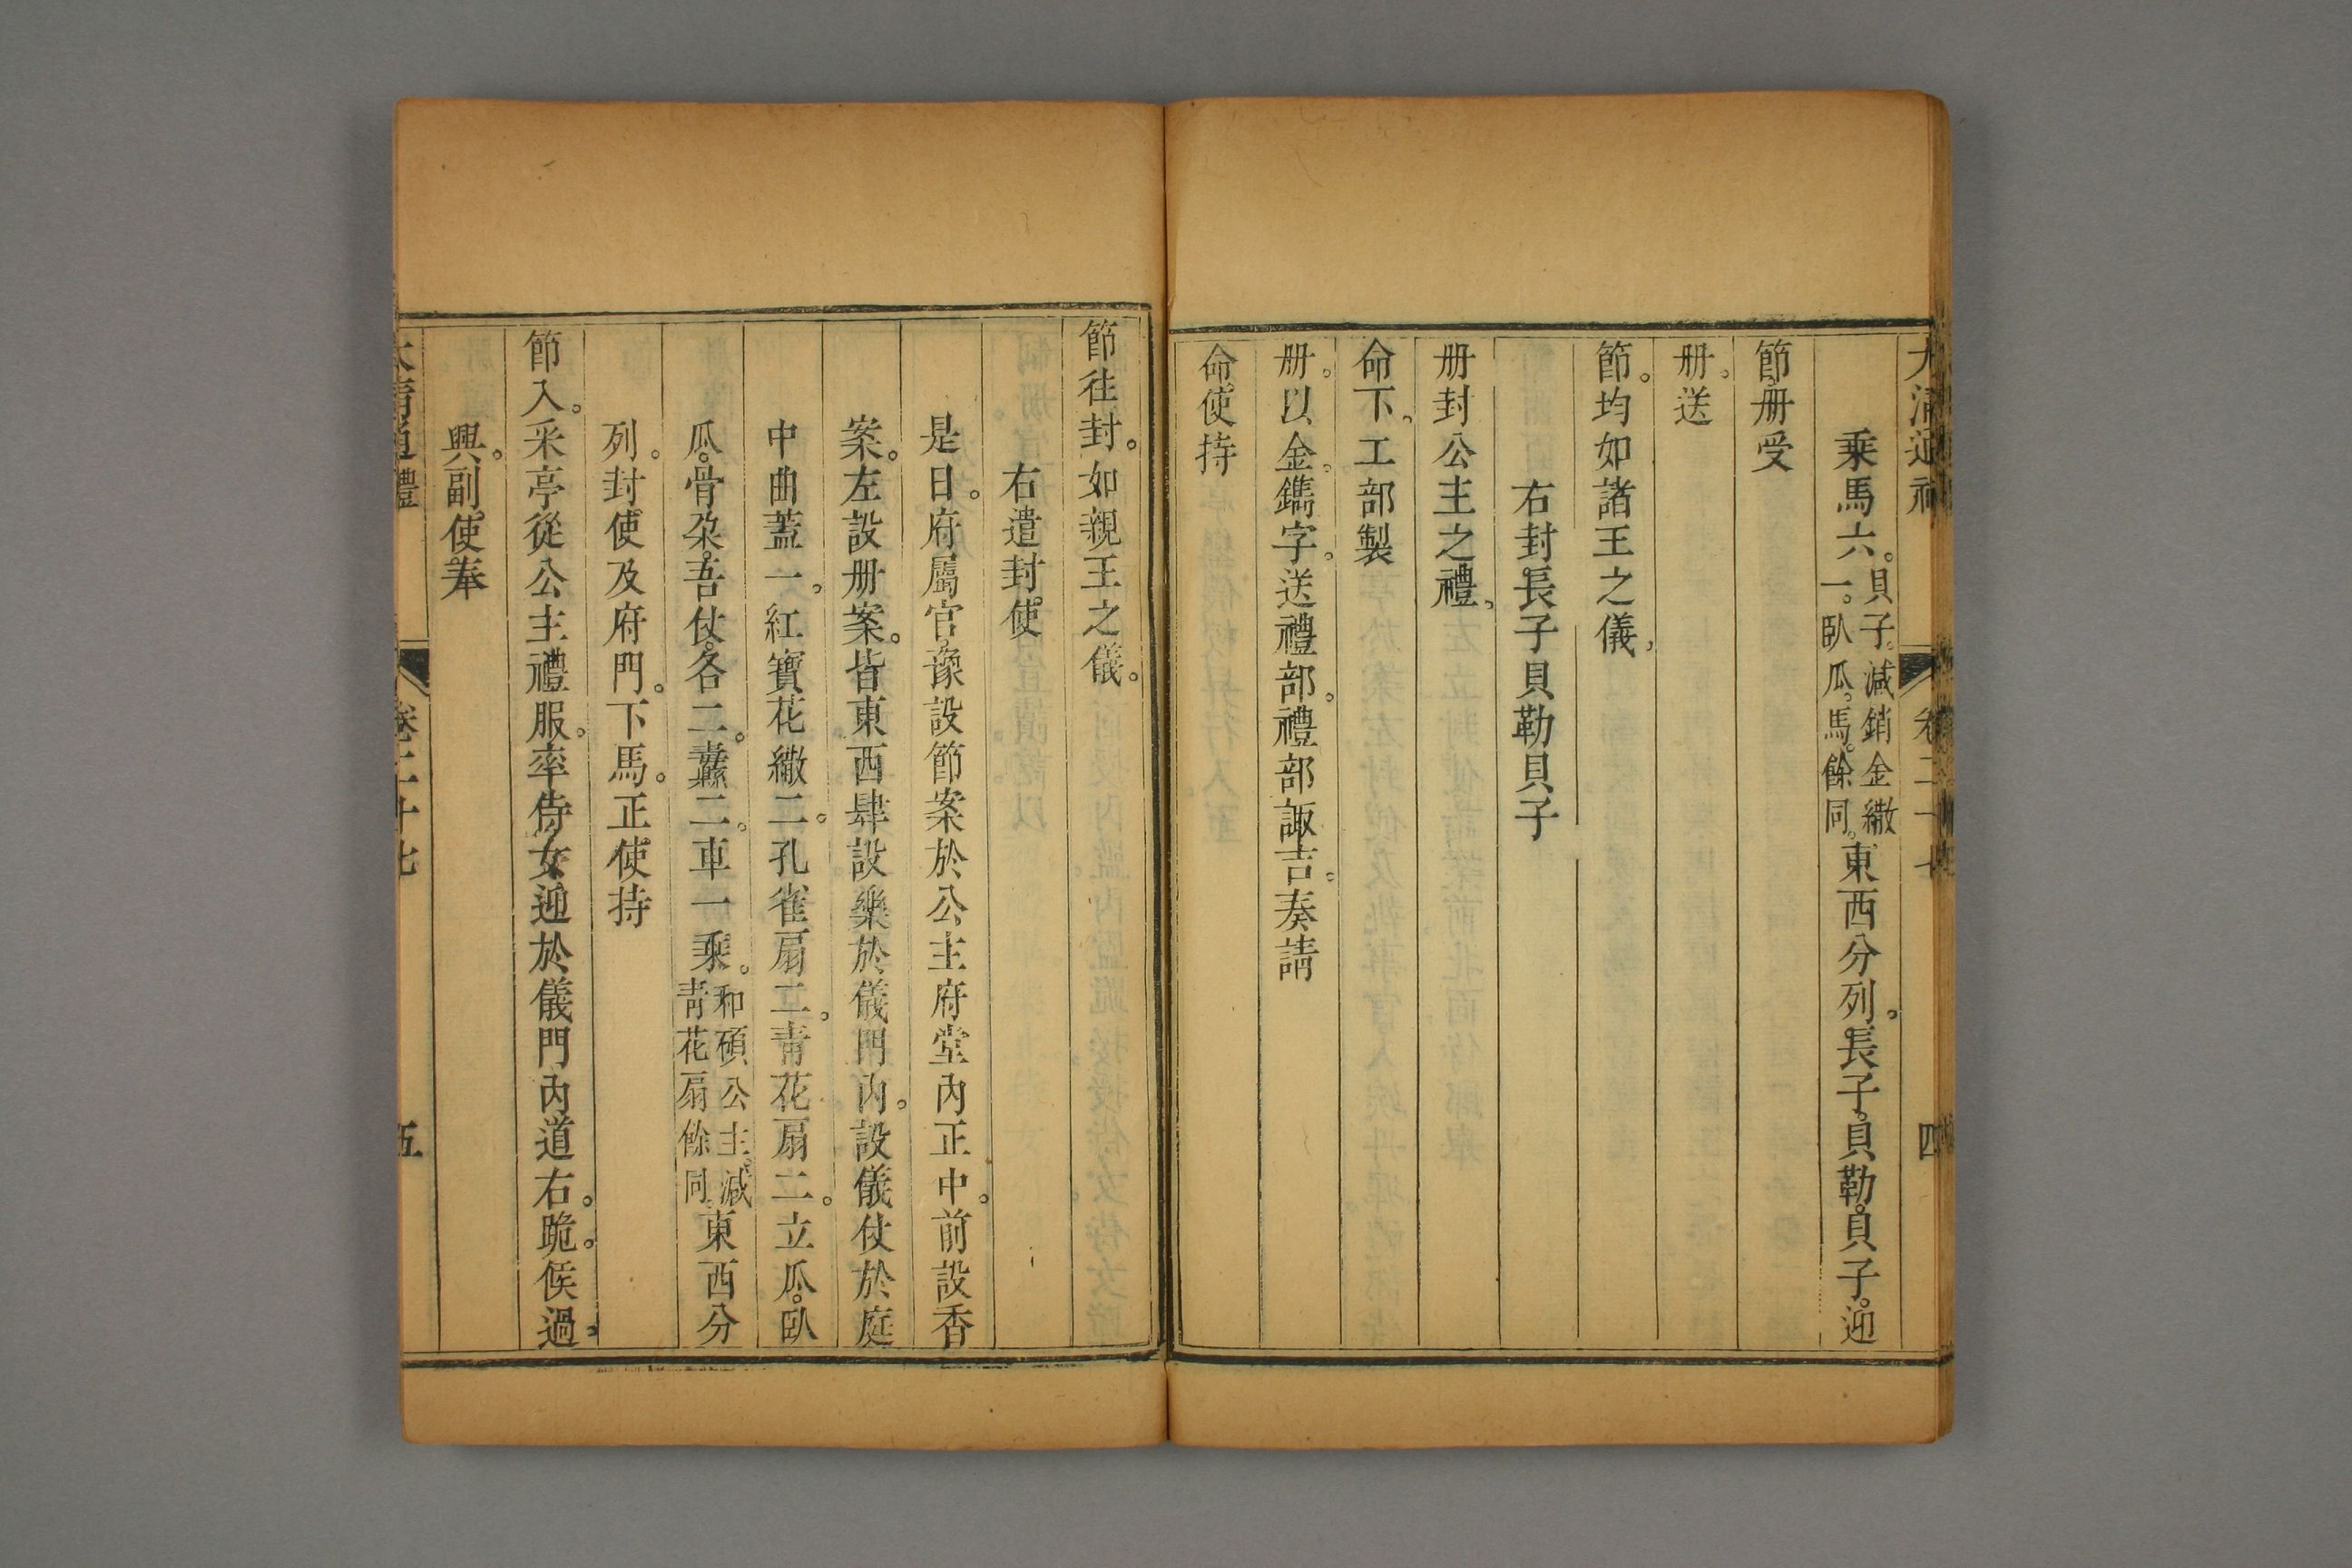 大清通禮 卷二十七 四
乘馬六。貝子。減銷金繖一。臥瓜。馬。餘同。東西分列。長子。貝勒。貝子。迎
節册受
册。送
節。均如諸王之儀。
右封長子貝勒貝子
册封公主之禮。
命下。工部製
册。以金。鐫字。送禮部。禮部諏吉。奏請
命使持
節往封。如親王之儀。
右遣封使
是日。府屬官。豫設節案於公主府堂內正中。前設香
案。左設册案。皆東西肆設樂於儀門內。設儀仗於庭
中曲蓋一。紅寶花繖二。孔雀扇二。青花扇二。立瓜。臥
瓜。骨朶。吾仗。各二。纛二。車一乘。和碩公主。減青花扇餘同。東西分
列。封使及府門。下馬。正使持
節入。釆亭從公主禮服。率侍女迎於儀門內道右。跪。俟過。
興。副使奉
大清通禮 卷二十七 五